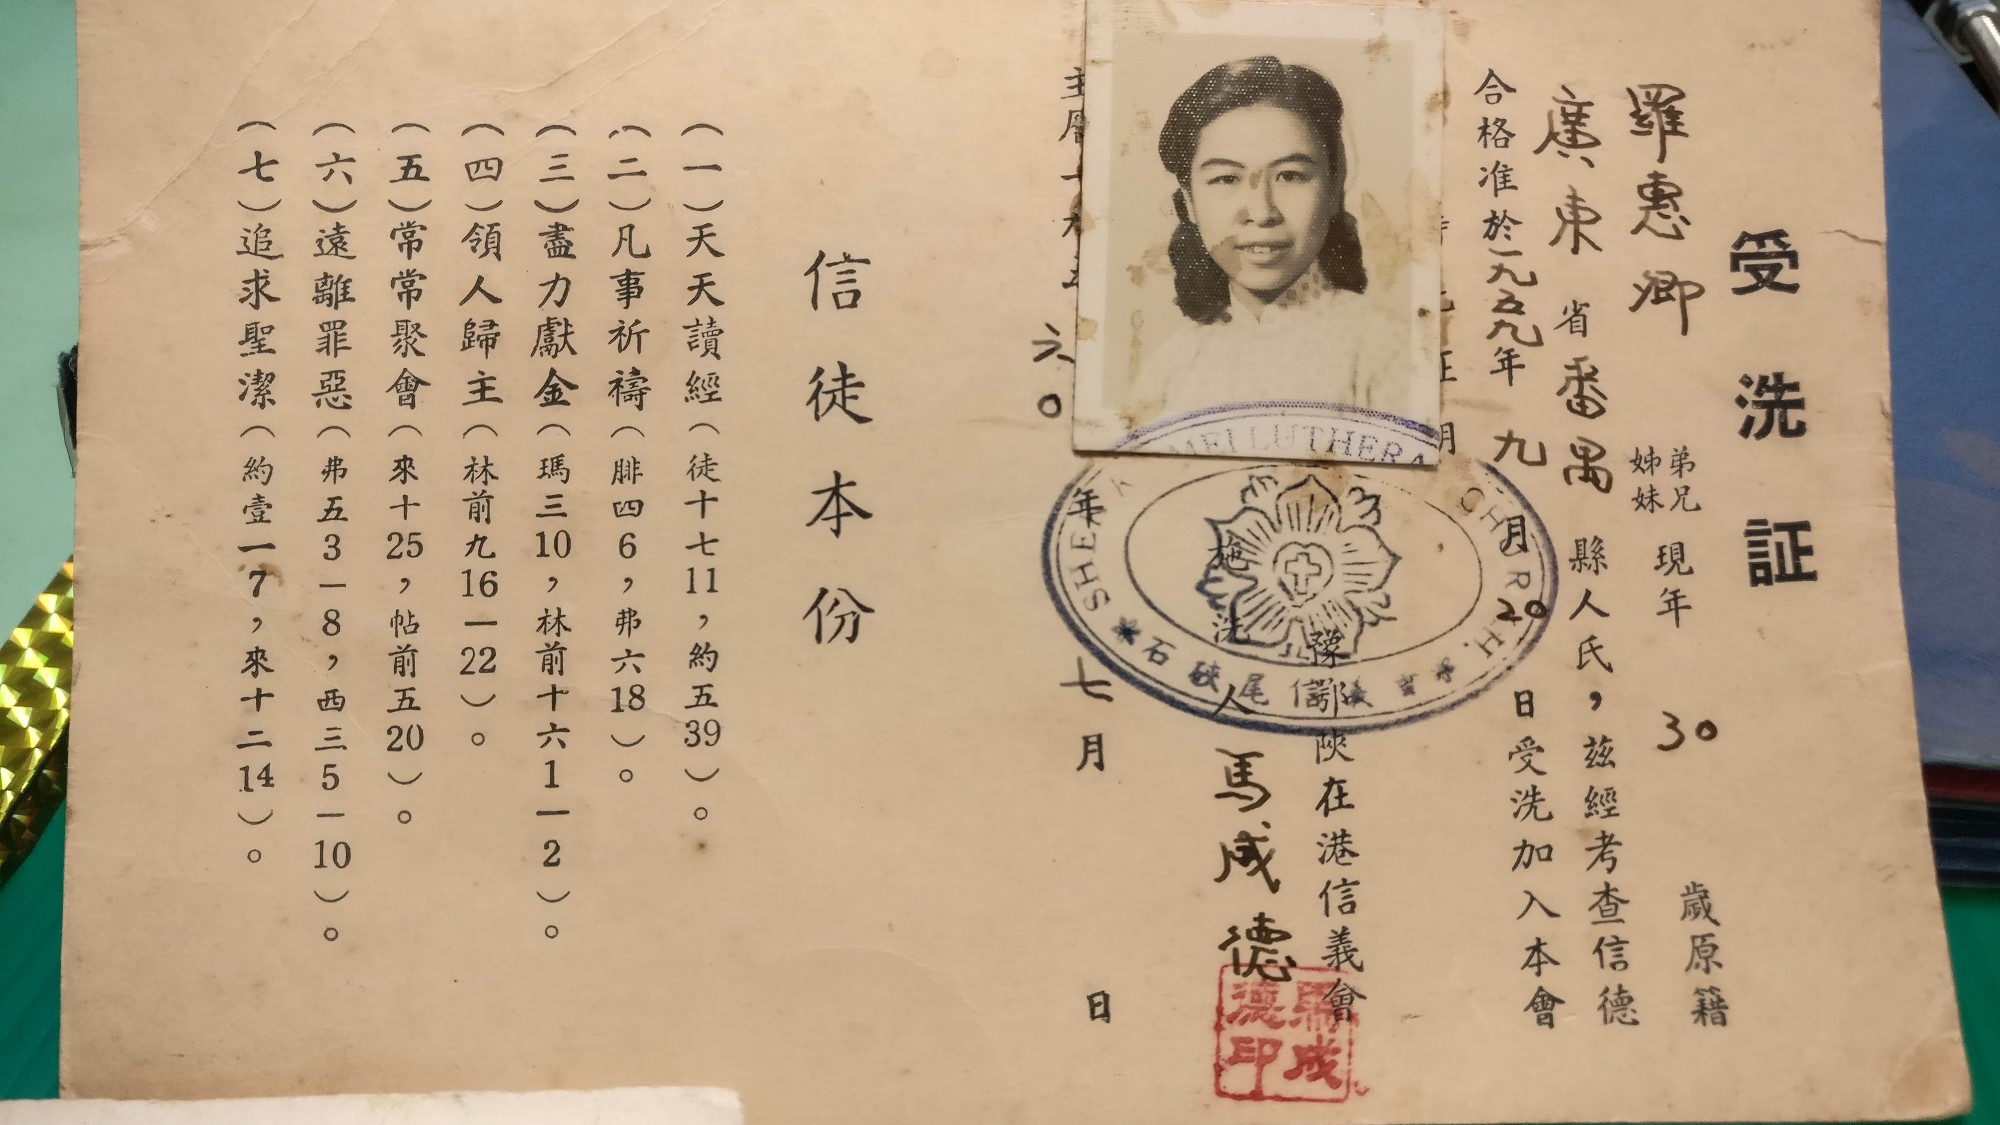 受洗証
羅惠卿 弟兄姊妹 現年 30 歲原籍
廣東 省 番禺 縣人氏，茲經考查信德
合格准於一九五九年 九 月 20 日受洗加入本會
豫鄂陝在港信義會
施洗人 馬成德
馬成德印
六〇 年 七 月 日
SHE MEI LUTHERA CHURCH.
石硤尾信義會
信徒本份
(一)天天讀經(徒十七11，約五39)。
(二)凡事祈禱(腓四6，弗六18)。
(三)盡力獻金(瑪三10，林前十六1－2)。
(四)領人歸主(林前九16－22)。
(五)常常聚會(來十25，帖前五20)。
(六)遠離罪惡(弗五3－8，西三5－10)。
(七)追求聖潔(約壹一7，來十二14)。